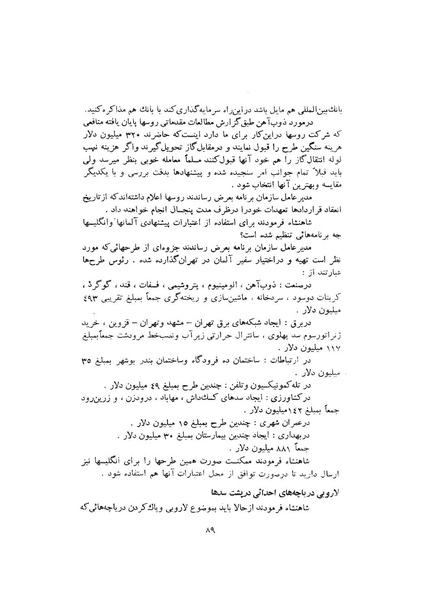 بانک‌بین‌المللی هم مایل باشد دراین‌راه سرمایه‌گذاری‌کند با بانک هم مذاکره‌کنید.
درمورد ذوب‌آهن طبق‌گزارش مطالعات مقدماتی روسها پایان یافته منافعی
که شرکت روسها دراین‌کار برای ما دارد اینست‌که حاضرند ۳۲۰ میلیون دلار
هزینه سنگین طرح را قبول نمایند و درمقابل‌گاز تحویل‌گیرند واگر هزینه نصب
لوله انتقال‌گاز را هم خود آنها قبول‌کنند مسلماً معامله خوبی بنظر میرسد ولی
باید قبلاً تمام جوانب امر سنجیده شده و پیشنهادها بدقت بررسی و با یکدیگر
مقایسه وبهترین آنها انتخاب شود .
مدیرعامل سازمان برنامه بعرض رساندند روسها اعلام داشته‌اندکه ازتاریخ
انعقاد قراردادها تعهدات خودرا درظرف مدت پنجسال انجام خواهند داد .
شاهنشاه فرمودند برای استفاده از اعتبارات پیشنهادی آلمانها وانگلیسها
چه برنامه‌هائی تنظیم شده است؟
مدیرعامل سازمان برنامه بعرض رساندند جزوه‌ای از طرحهائی‌که مورد
نظر است تهیه و دراختیار سفیر آلمان در تهران‌گذارده شده . رئوس طرح‌ها
عبارتند از :
درصنعت : ذوب‌آهن ، آلومینیوم ، پتروشیمی ، فسفات ، قند ، گوگرد ،
کربنات دوسود ، سردخانه ، ماشین‌سازی و ریخته‌گری جمعاً بمبلغ تقریبی ۴۹۳
میلیون دلار .
دربرق : ایجاد شبکه‌های برق تهران – مشهد وتهران – قزوین ، خرید
ژنراتورسد پهلوی ، سانترال حرارتی زیرآب ونصب‌خط مرودشت جمعاًبمبلغ
۱۱۷ میلیون دلار .
در ارتباطات : ساختمان ده فرودگاه وساختمان بندر بوشهر بمبلغ ۳۵
میلیون دلار .
در تله‌کمونیکسیون وتلفن : چندین طرح بمبلغ ۴۹ میلیون دلار .
درکشاورزی : ایجاد سدهای مهاباد ، درودزن ، و زرین‌رود
جمعاً بمبلغ ۱۴۲میلیون دلار .
درعمران شهری : چندین طرح بمبلغ ۱۵ میلیون دلار .
دربهداری : ایجاد چندین بیمارستان بمبلغ ۳۰ میلیون دلار .
جمعاً ۸۸۱ میلیون دلار .
شاهنشاه فرمودند ممکنست صورت همین طرحها را برای انگلیسها نیز
ارسال دارید تا درصورت توافق از محل اعتبارات آنها هم استفاده شود .
لاروبی دریاچه‌های احداثی درپشت سدها
شاهنشاه فرمودند ازحالا باید بموضوع لاروبی وپاک‌کردن دریاچه‌هائی‌که
۸۹